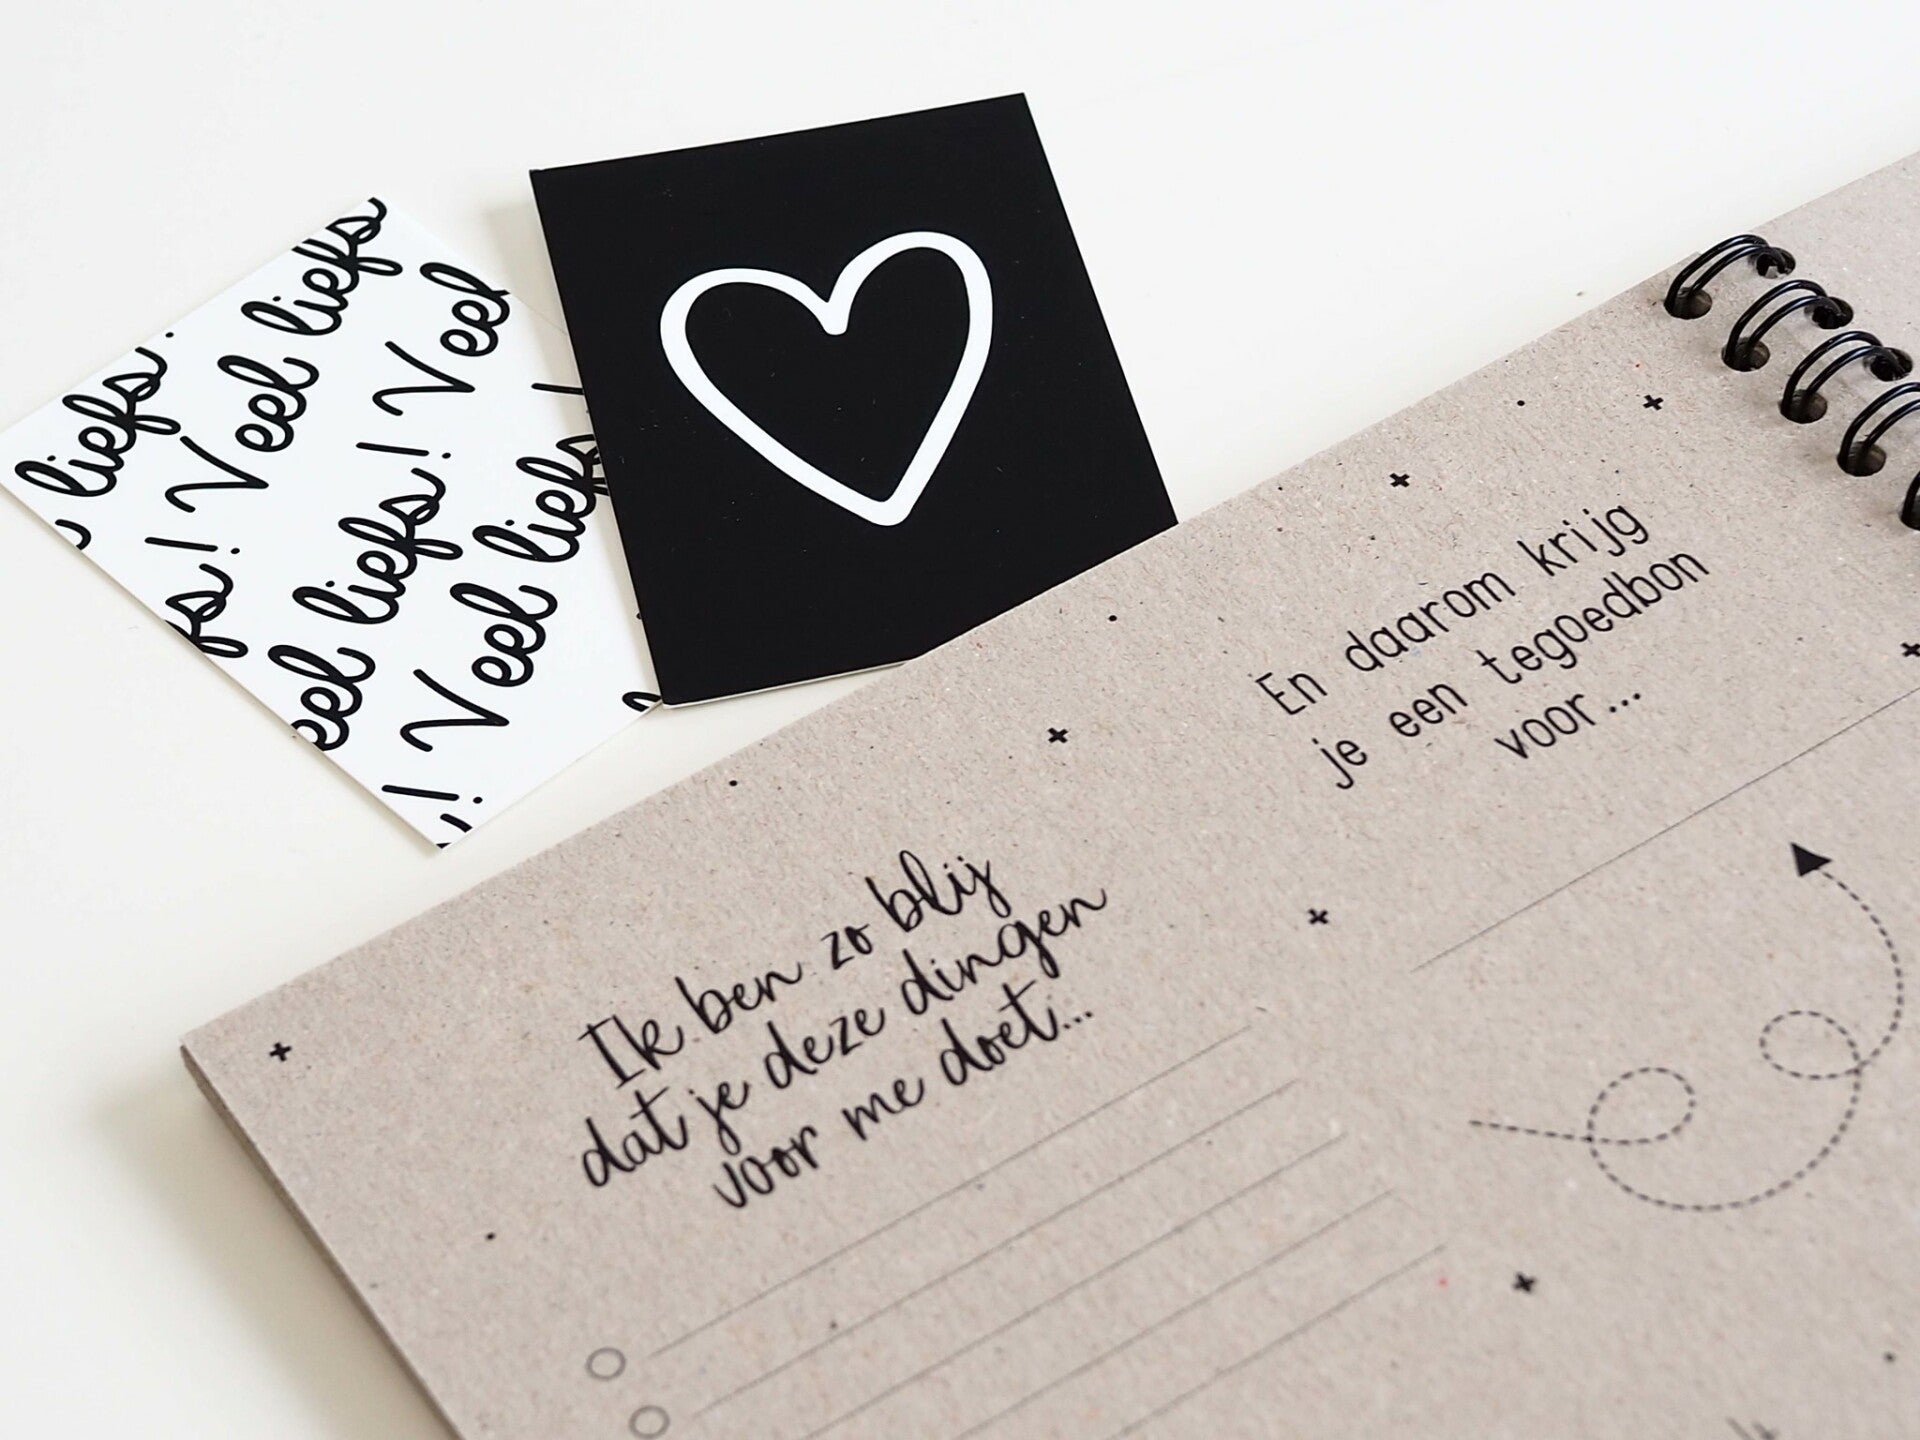 liefs!
s! Veel liefs
fs! Veel liefs! Veel
eel liefs! Veel
! Veel liefs!
!
Ik ben zo blij
dat je deze dingen
voor me doet...
En daarom krijg
je een tegoedbon
voor...